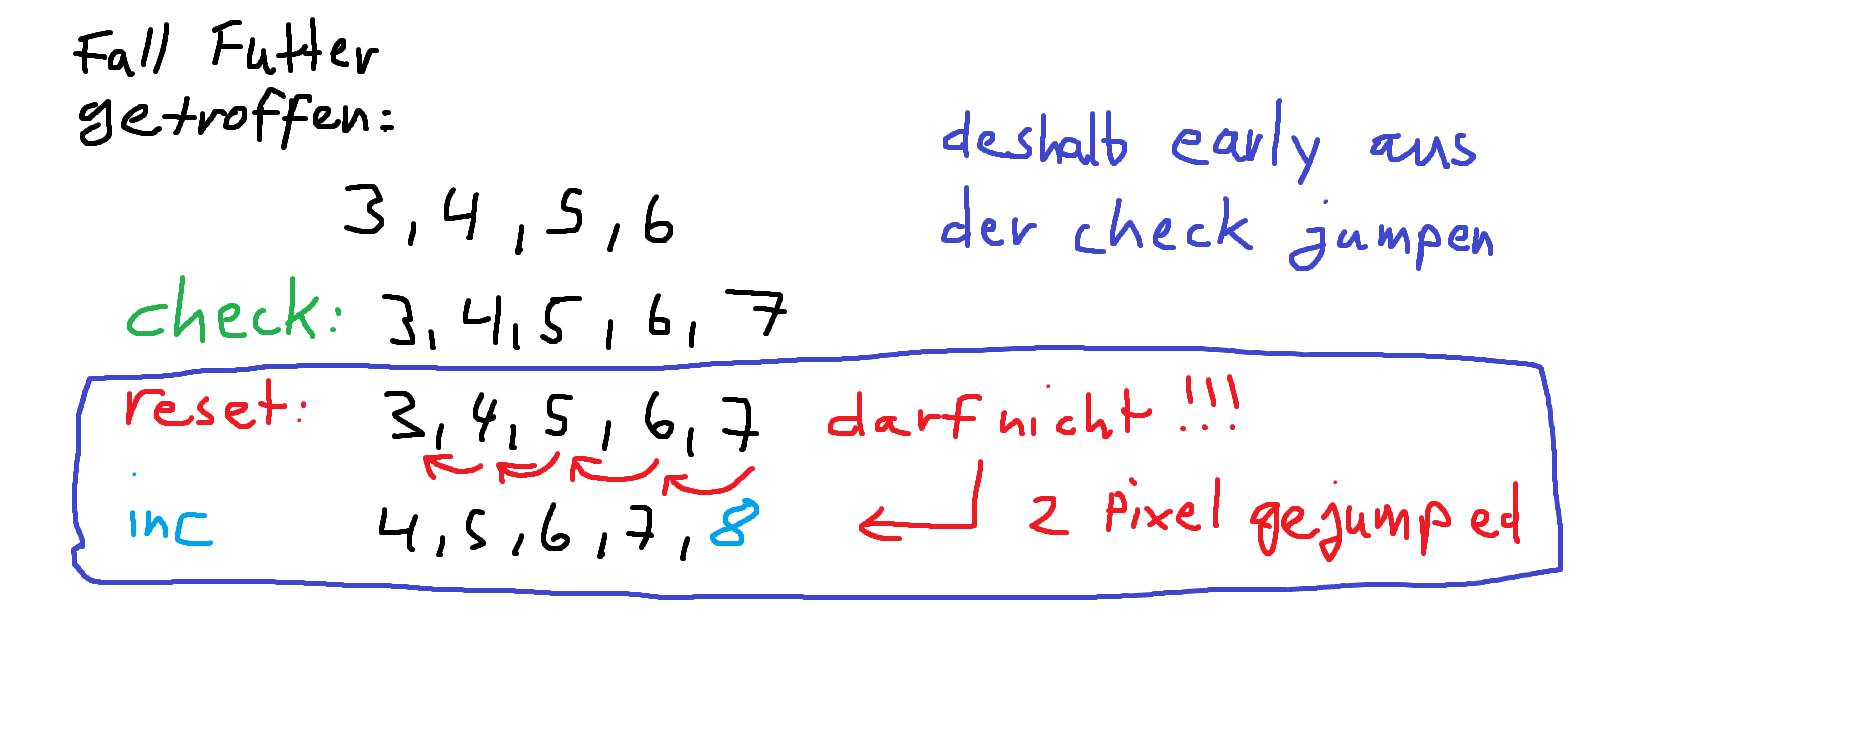 Fall Futter
getroffen:
deshalb early aus
der check jumpen
3, 4, 5, 6
check: 3, 4, 5, 6, 7
reset: 3, 4, 5, 6, 7 darf nicht!!!
inc 4, 5, 6, 7, 8 2 Pixel gejumped